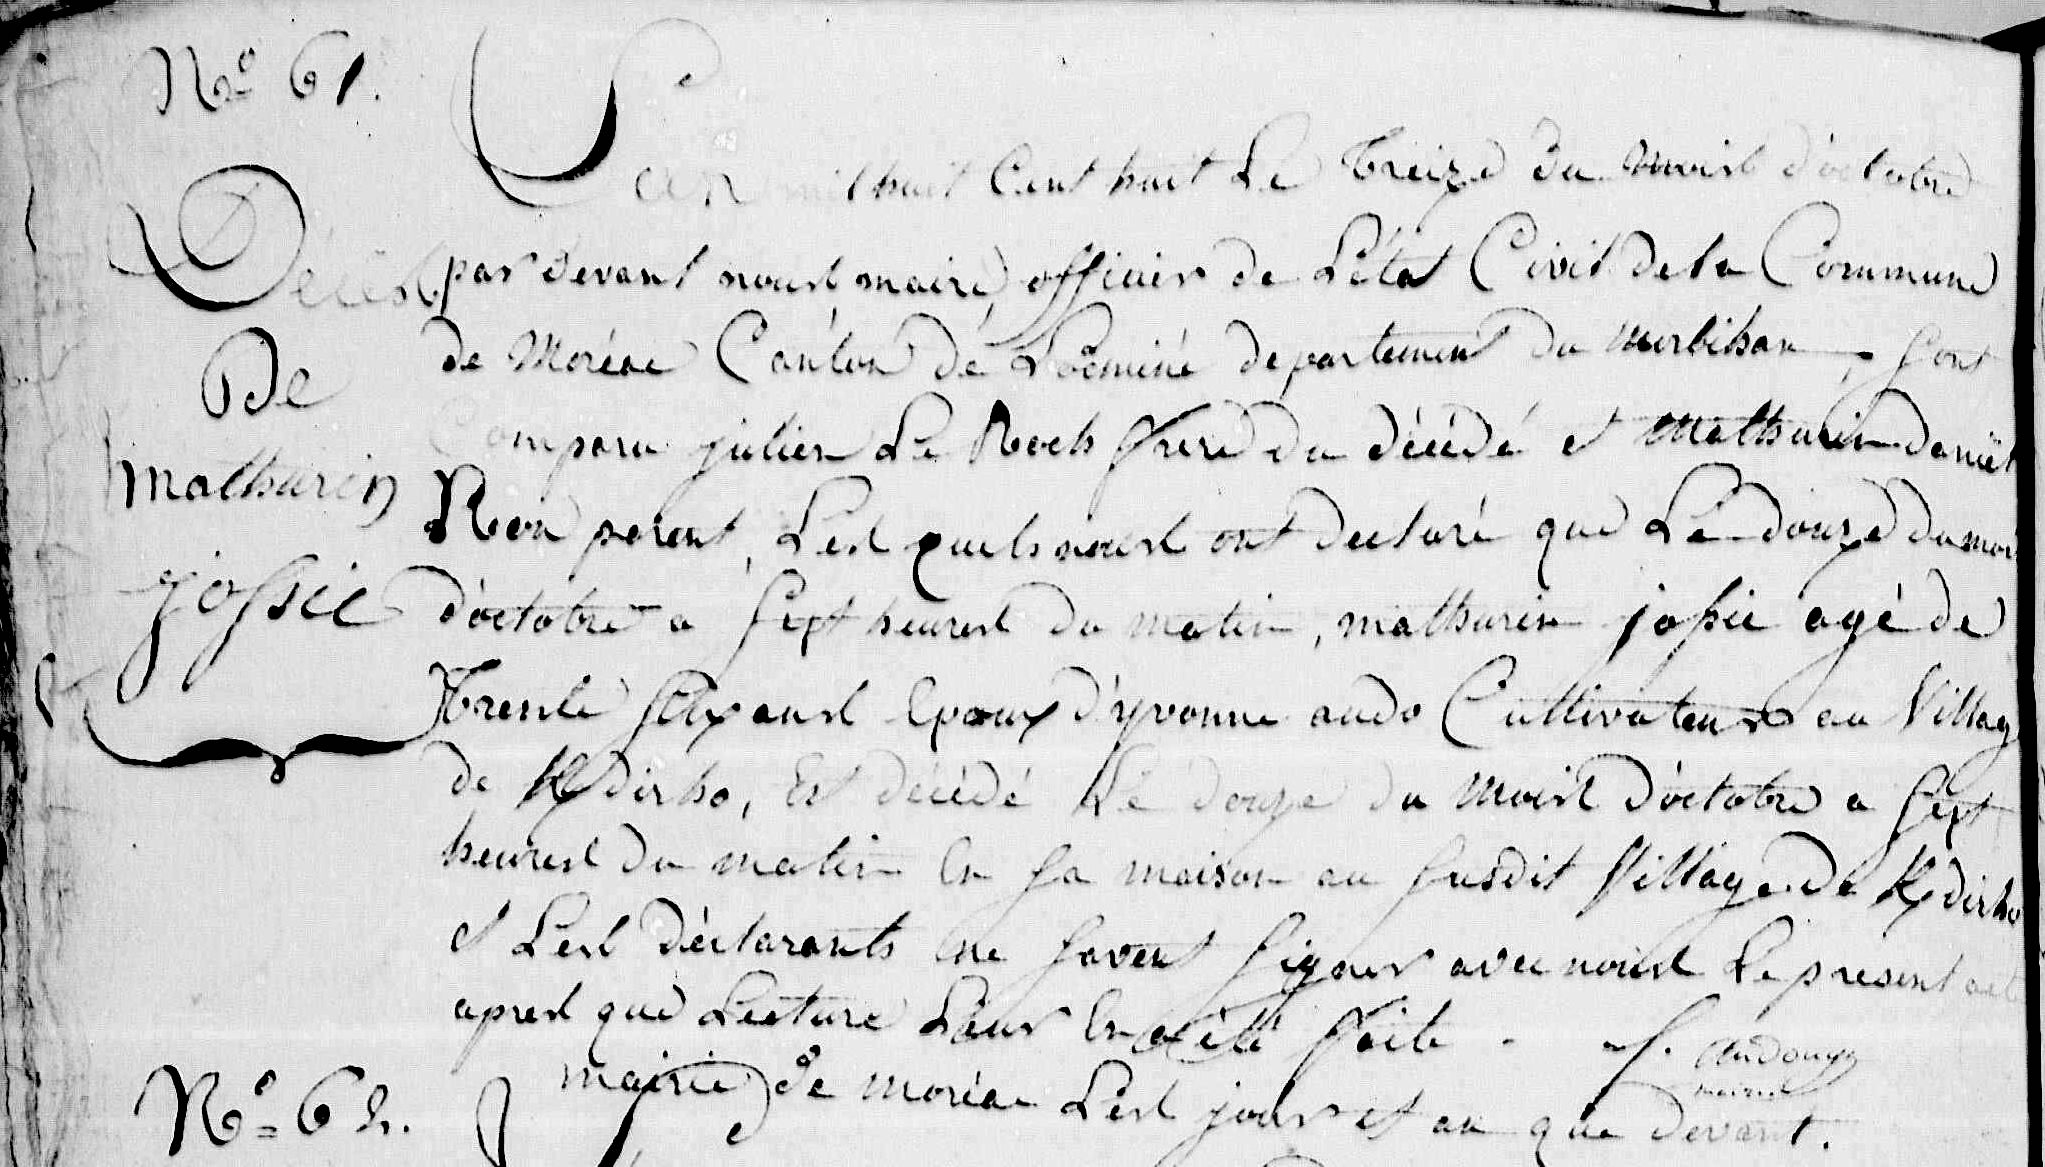 No 61.
L'an mil huit Cent huit Le Treize du mois d'octobre
Décès par devant nous, maire, officier de L'état Civil de la Commune
De de Moréac Canton dé Locminé departement du morbihan, sont
Comparu julien Le Roch frere du décédé et Mathurin daniel
mathurin Non parent, Les quels nous ont declaré que Le douze du moi
jossic d'octobre a sept heures du matin, mathurin jossic agé de
Trente ans Epoux d'yvonne audo Cultivateur au Villag
de Kdirho, Est décédé Le douze du mois d'octobre a sept
heures du matin En sa maison au susdit Village de Kdirho
et Les déclarants ne savent signer avec nous Le present acte
apres que Lecture Leur En a été faite.
maire
mairie de moréac Les jour et an que devant.
No 62.